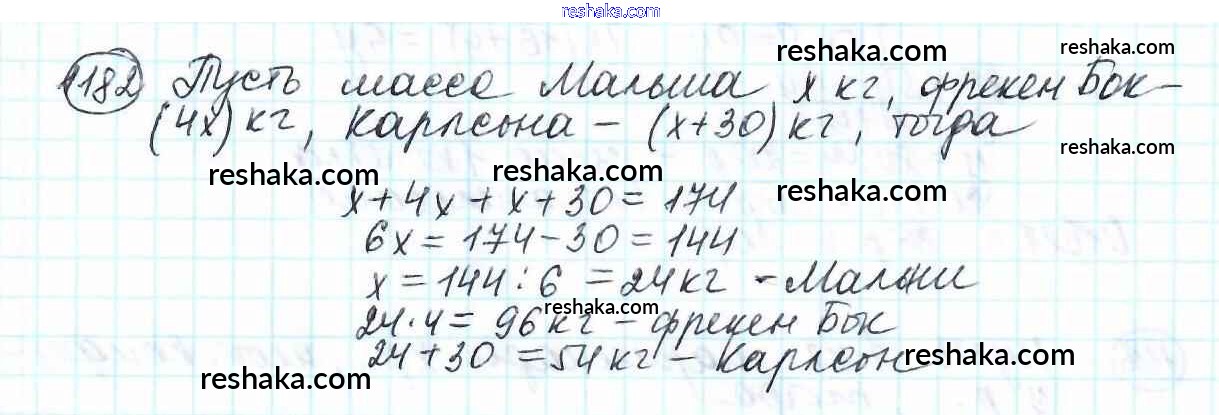 reshaka.com
1182 Пусть масса Малыша x кг, фрекен Бок -
reshaka.com
reshaka.com
(4x) кг, Карлсона - (x+30) кг, тогда
reshaka.com
reshaka.com
reshaka.com
reshaka.com
x + 4x + x + 30 = 174
6x = 174 - 30 = 144
x = 144 : 6 = 24 кг - Малыш
reshaka.com
24 · 4 = 96 кг - фрекен Бок
24 + 30 = 54 кг - Карлсон
reshaka.com
reshaka.com